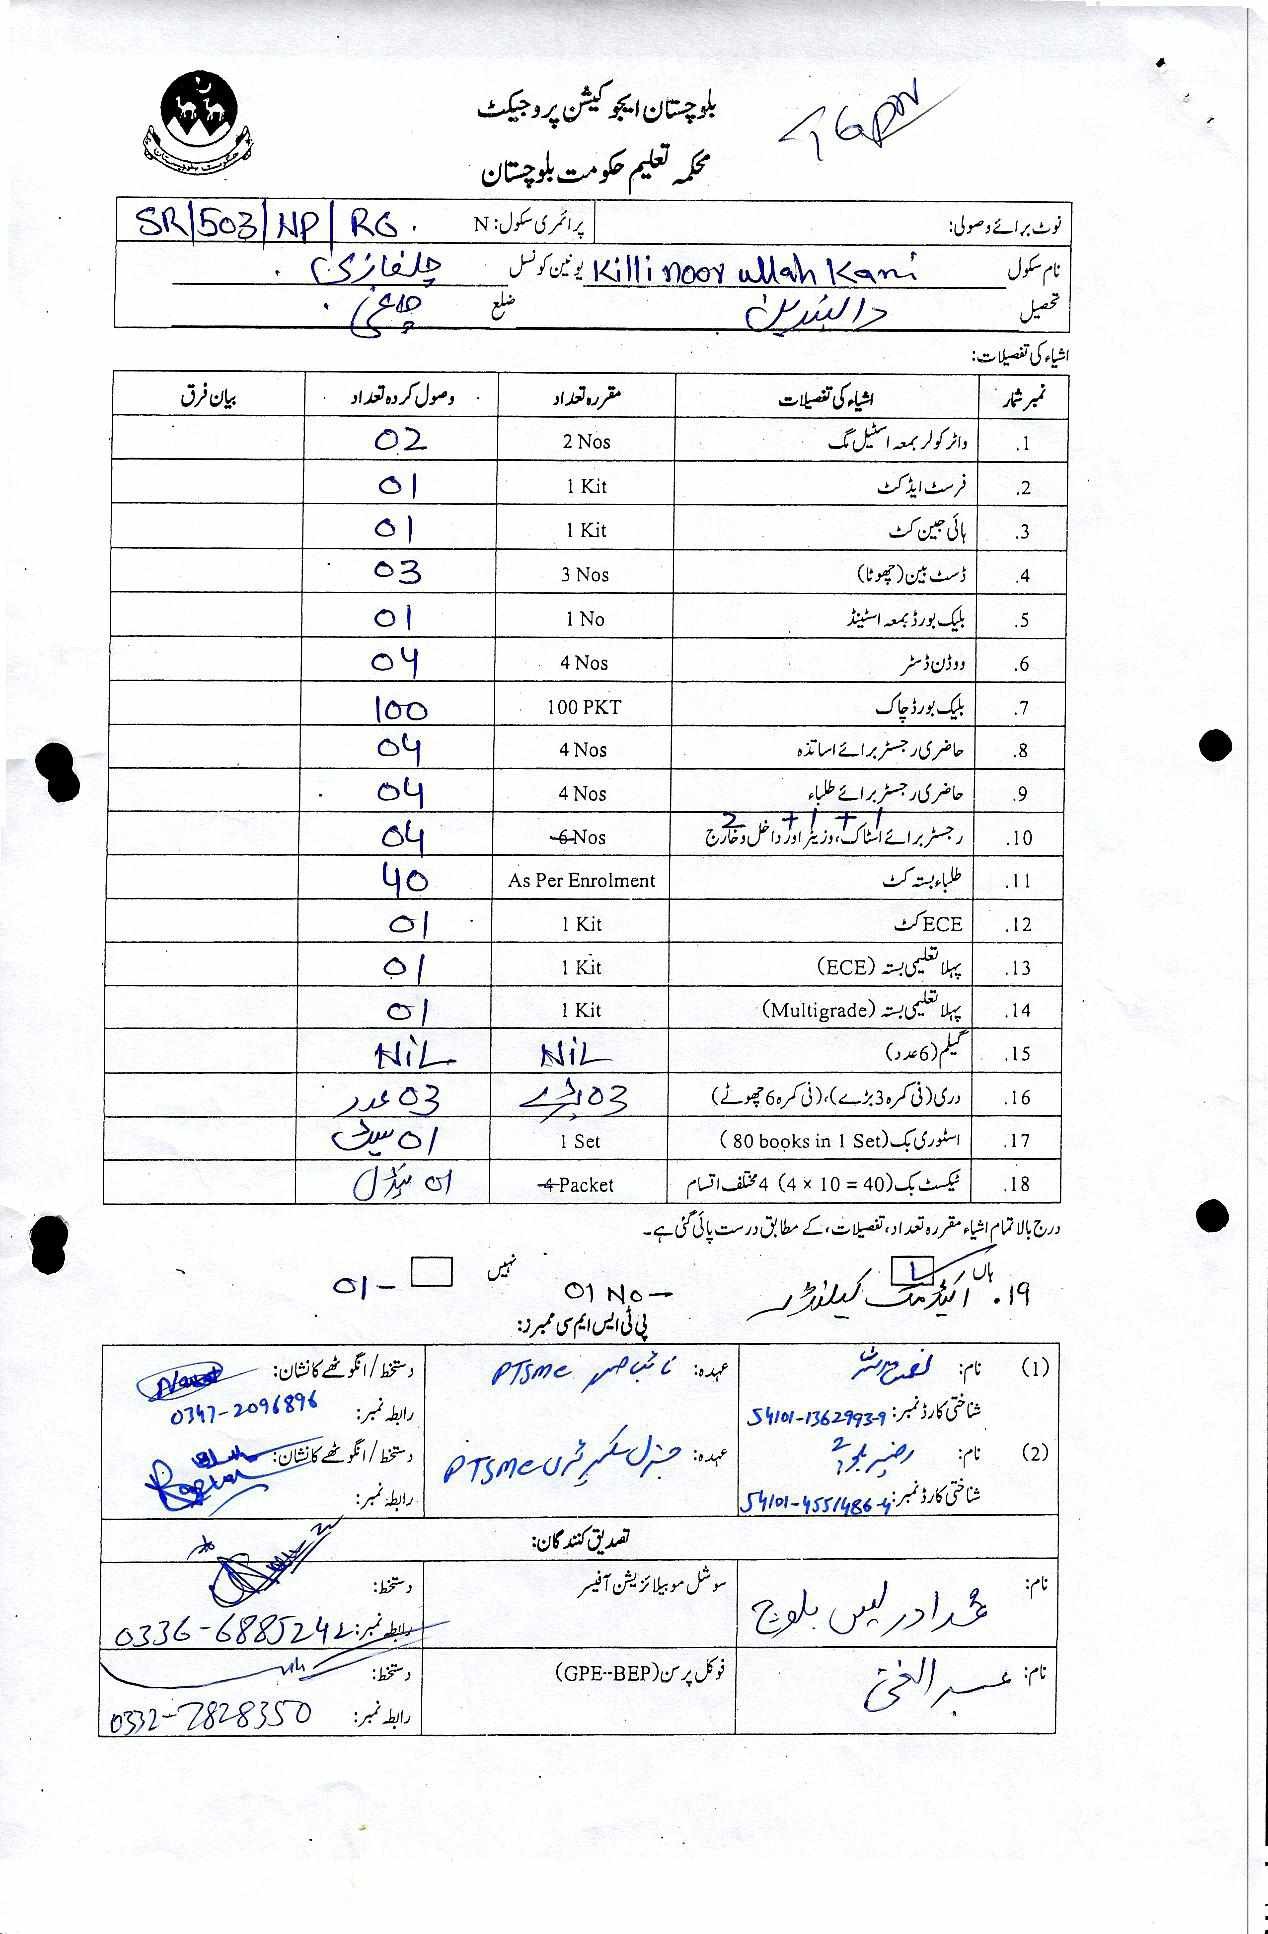 بلوچستان ایجوکیشن پروجیکٹ
محکمہ تعلیم حکومت بلوچستان
نوٹ برائے وصولی: پرائمری سکول: N SR/503/NP/RG
نام سکول Killi noor ullah Kani یونین کونسل
تحصیل دالبندین ضلع چاغی
اشیاء کی تفصیلات:
نمبر شمار اشیاء کی تفصیلات مقررہ تعداد وصول کردہ تعداد بیان فرق
1. واٹر کولر بمعہ اسٹیل مگ 2 Nos 02
2. فرسٹ ایڈ کٹ 1 Kit 01
3. ہائی جین کٹ 1 Kit 01
4. ڈسٹ بین (چھوٹا) 3 Nos 03
5. بلیک بورڈ بمعہ اسٹینڈ 1 No 01
6. ووڈن ڈسٹر 4 Nos 04
7. بلیک بورڈ چاک 100 PKT 100
8. حاضری رجسٹر برائے اساتذہ 4 Nos 04
9. حاضری رجسٹر برائے طلباء 4 Nos 04
2 + 1 + 1
10. رجسٹر برائے اسٹاک، وزیٹر اور داخل و خارج 6 Nos 04
11. طلباء بستہ کٹ As Per Enrolment 40
12. ECE کٹ 1 Kit 01
13. پہلا تعلیمی بستہ (ECE) 1 Kit 01
14. پہلا تعلیمی بستہ (Multigrade) 1 Kit 01
15. گیلم (6 عدد) NiL NiL
16. دری (فی کمرہ 3 بڑے)، (فی کمرہ 6 چھوٹے) 03 بڑے 03 عدد
17. اسٹوری بک (80 books in 1 Set) 1 Set 01 سیٹ
18. ٹیکسٹ بک (4 x 10 = 40) 4 مختلف اقسام 4 Packet 01 بنڈل
درج بالا تمام اشیاء مقررہ تعداد، تفصیلات، کے مطابق درست پائی گئی ہے۔
ہاں نہیں
19. اکیڈمک کیلنڈر 01 No - 01-
پی ٹی ایس ایم سی ممبرز:
(1) نام: عہدہ: نائب صدر PTSMC دستخط/انگوٹھے کا نشان:
شناختی کارڈ نمبر: 54101-1362993-9 رابطہ نمبر: 0347-2096896
(2) نام: عہدہ: جنرل سیکریٹری PTSMC دستخط/انگوٹھے کا نشان:
شناختی کارڈ نمبر: 54101-4551486-4 رابطہ نمبر:
تصدیق کنندگان:
نام: محمد ادریس بلوچ سوشل موبیلائزیشن آفیسر دستخط:
رابطہ نمبر: 0336-6885242
نام: عبدالغنی فوکل پرسن (GPE--BEP) دستخط:
رابطہ نمبر: 0332-7828350